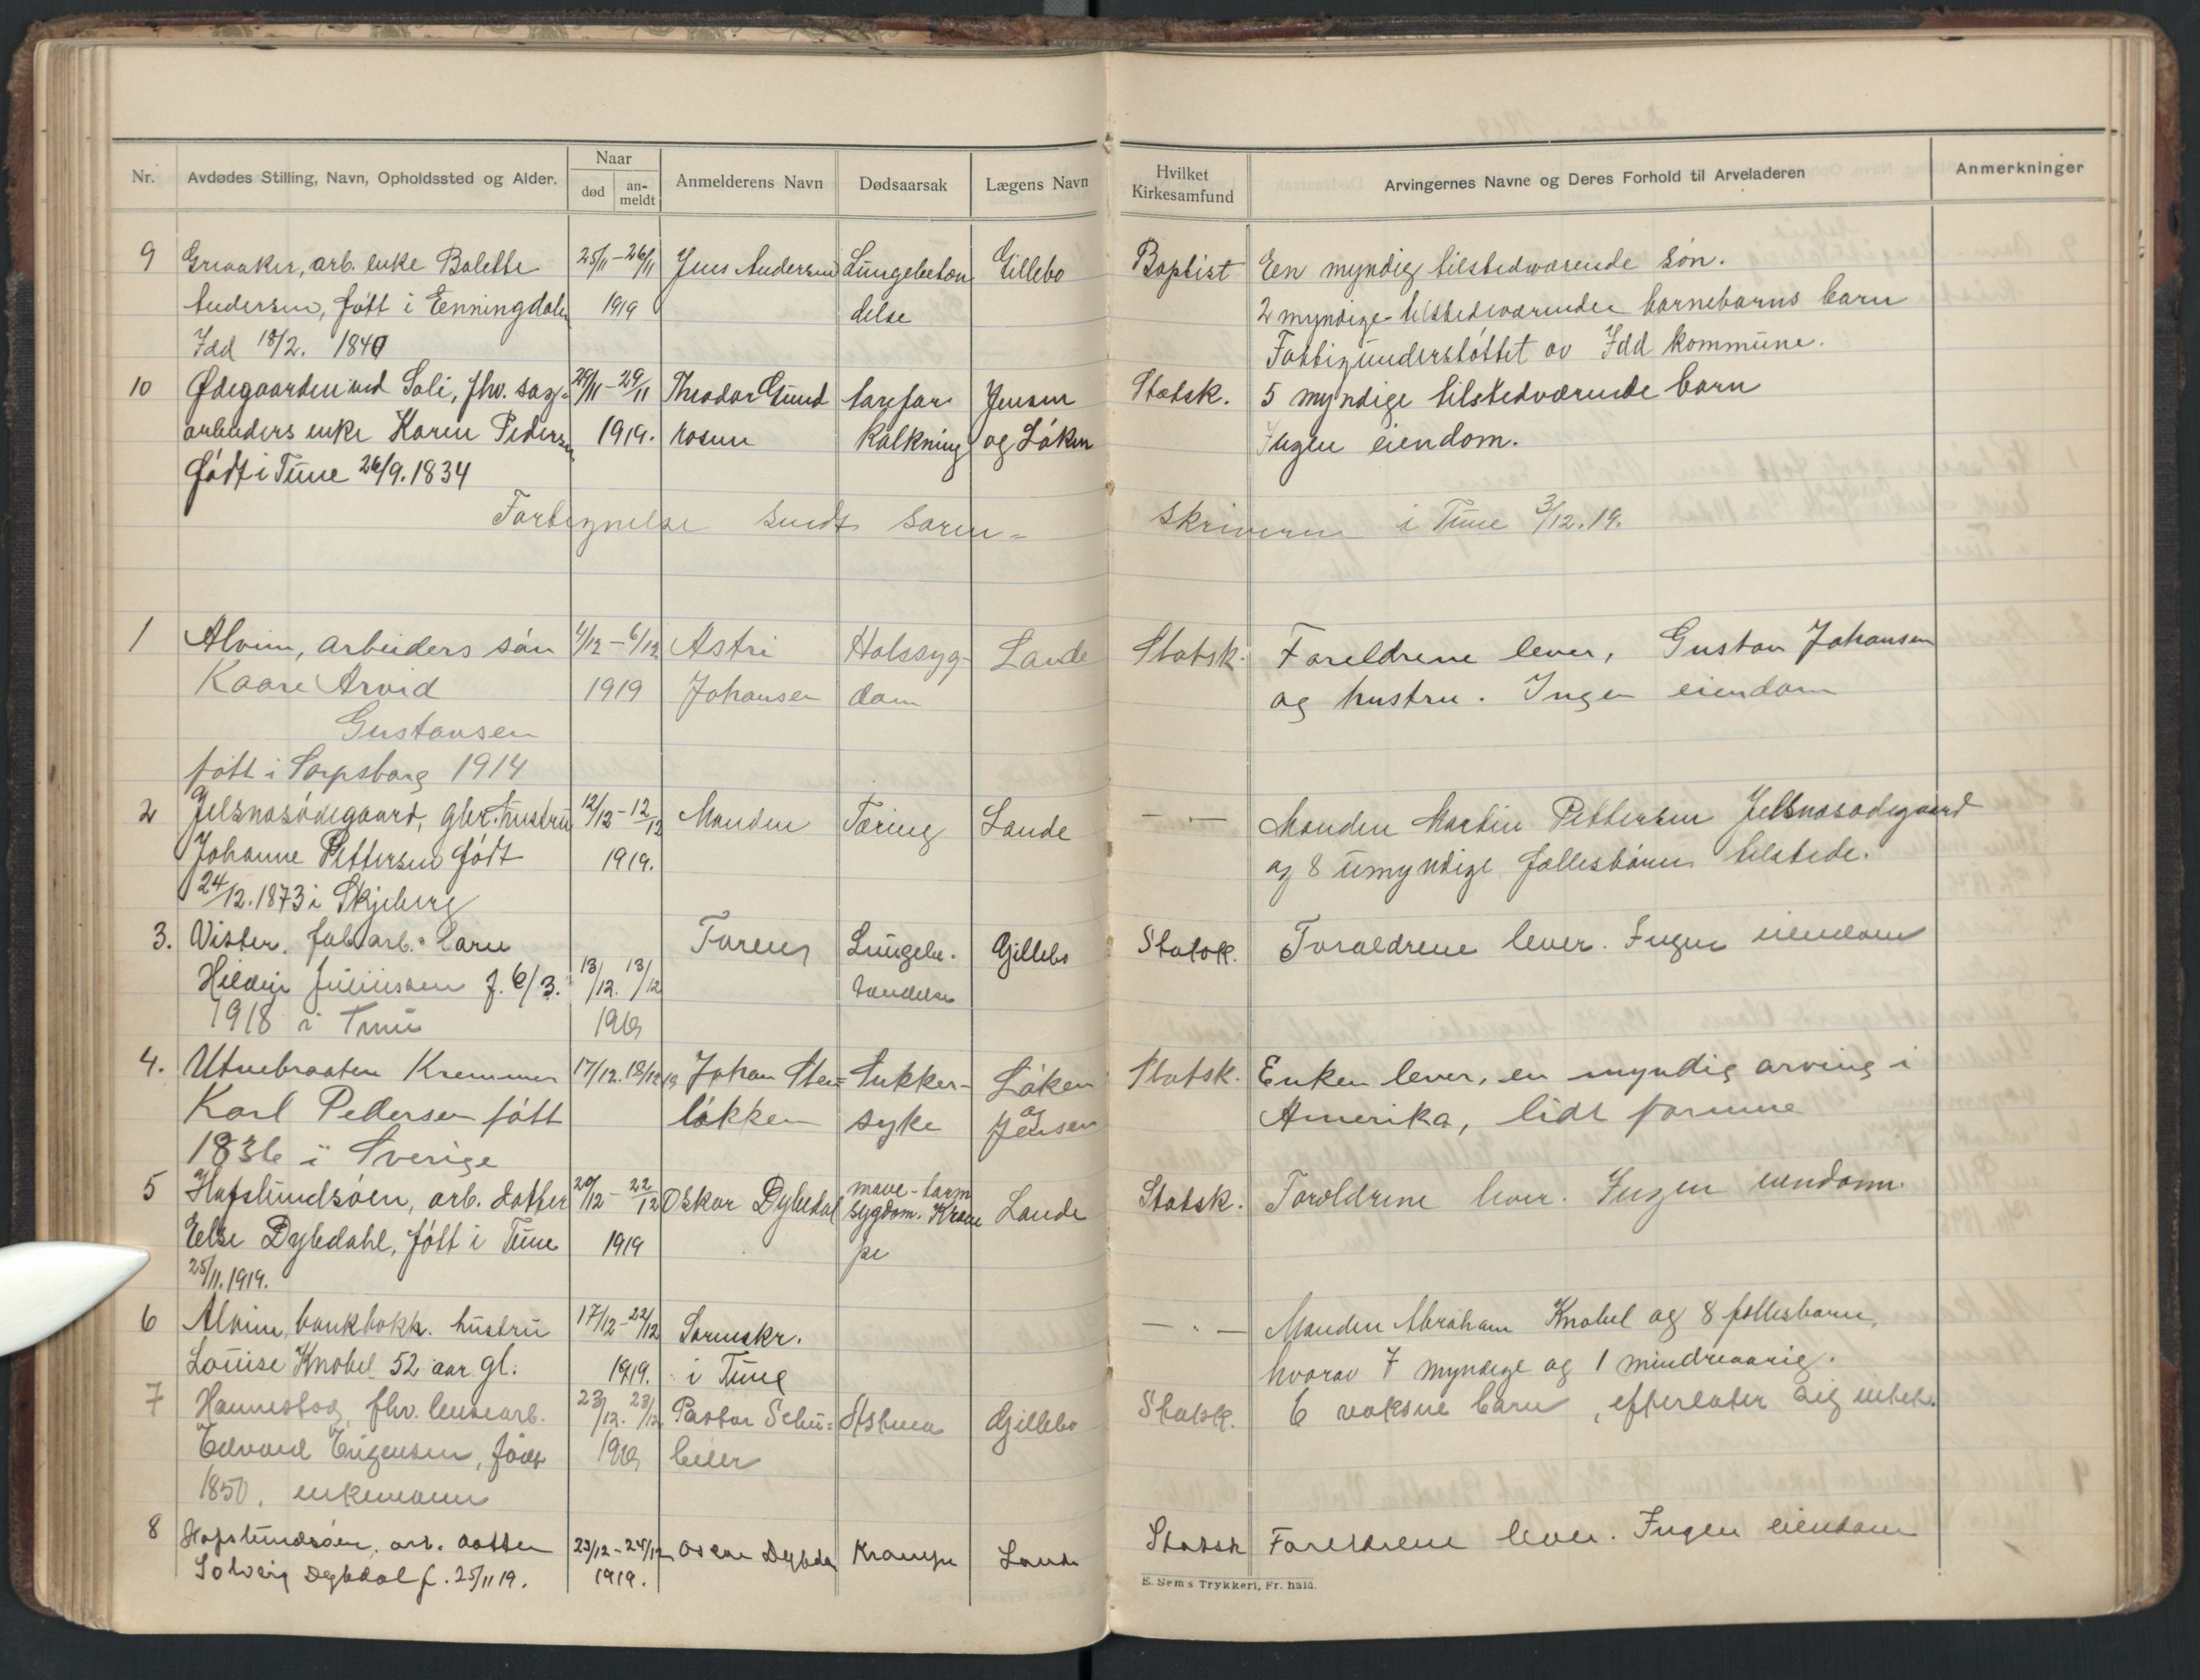 Nr.
Avdødes Stilling, Navn, Opholdssted og Alder.
Naar
død
an-
meldt
Anmelderens Navn
Dødsaarsak
Lægens Navn
Hvilket
Kirkesamfund
Arvingernes Navne og Deres Forhold til Arveladeren
Anmerkninger
9 Greaaker, arb. enke Bolette 25/11 - 26/11 Jens Andersen Lungebetæn Gillebo Baptist Een myndig tilstedværende søn.
Andersen, født i Enningdalen 1919 delse 2 myndige tilstedværende barnebarns barn
Idd 18/2. 1840 Fattigunderstøttet av Idd kommune.
10 Ødegaarden ved Soli, fhv. sag- 29/11 - 29/11 Theodor Gund Aarefor- Jensen Statsk. 5 myndige tilstedværende barn
arbeiders enke Karen Pedersen 1919. kalkning og Løken Ingen eiendom.
født i Tune 26/9. 1834
Fortegnelse sendt soren- skriveren i Tune 3/12. 19.
1 Alvim, arbeiders søn 4/12 - 6/12 Astri Halssyg- Lande Statsk. Foreldrene lever, Gustav Johansen
Kaare Arvid 1919 Johansen dom og hustru. Ingen eiendom
Gustavsen
født i Sarpsborg 1914
2 Jelsnæsødegaard, gbr. hustru 12/12 - 12/12 Manden Tæring Lande — " — Manden Martin Pettersen Jelsnæsødegaard
Johanne Pettersen født 1919. og 8 umyndige fællesbørn tilstede.
24/12. 1873 i Skjeberg
3. Vister, fab. arb. barn Faren Lungebe- Gillebo Statsk. Foraeldrene lever. Ingen eiendom
Juliussen f. 6/3. 13/12. 13/12 tændelse
1918 i Tune 1919
4. Utnebraaten Kræmmer 17/12. 18/12 19 Johan Sten= Sukker- Løken Statsk. Enken lever, en myndig arving i
Karl Pedersen født løkken syke og Jensen Amerika, lidt formue
1836 i Sverige
5 Hafslundsøen, arb. datter 20/12 - 22/12 Oskar Dybedal mave-tarm Lande Statsk. Foreldrene lever. Ingen eiendom.
Else Dybedahl, født i Tune 1919 sygdom. Kram
25/11. 1919. pe
6 Alvim, bankbokh. hustru 17/12 - 22/12 Sorenskr. — " — Manden Abraham Knobel og 8 fællesbarn,
Louise Knobel 52 aar gl. 1919. i Tune hvorav 7 myndige og 1 mindreaarig.
7 Hannestad, fhv. lensearb. 23/12. 23/12 Pastor Schü= Asthma Gillebo Statsk. 6 voksne barn, efterlater sig intet.
Edvard født 1919 beler
1850, enkemann
8 Hafslundsøen, arb. datter 23/12 - 24/12 Oscar Dybdal Krampe Lande Statsk Foreldrene lever. Ingen eiendom
Solveig Dybdal f. 25/11 19. 1919.
E. Sem's Trykkeri, Fr.hald.